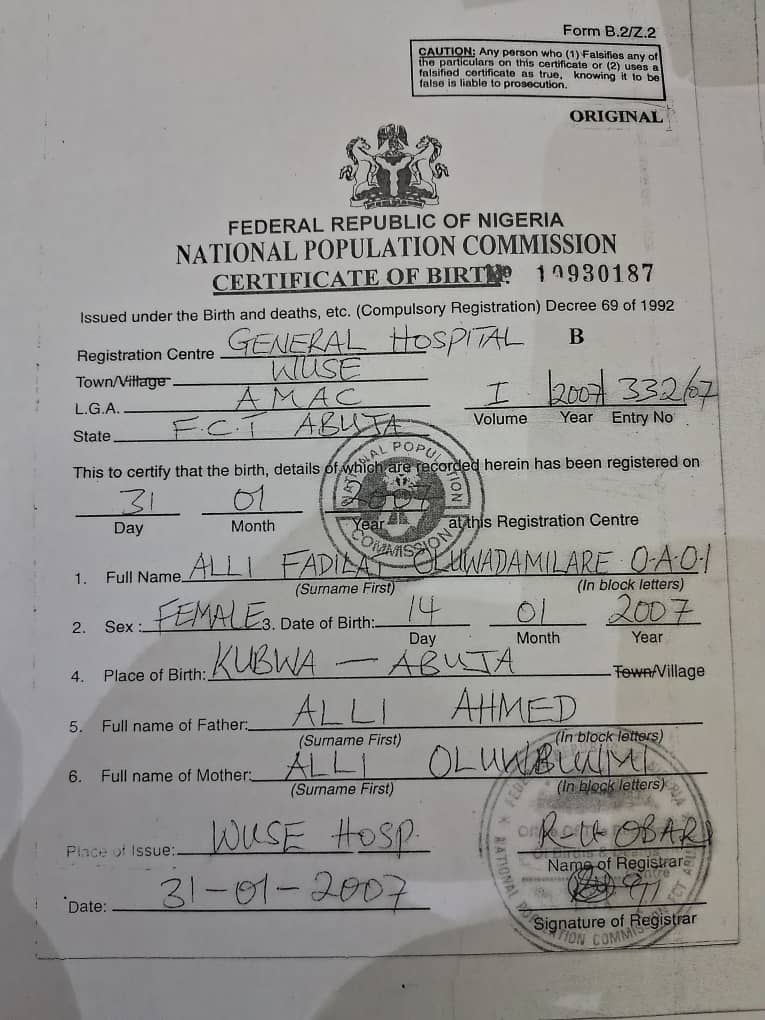 Form B.2/Z.2
CAUTION: Any person who (1) Falsifies any of
the particulars on this certificate or (2) uses a
falsified certificate as true, knowing it to be
false is liable to prosecution.
ORIGINAL
FEDERAL REPUBLIC OF NIGERIA
NATIONAL POPULATION COMMISSION
CERTIFICATE OF BIRTH No 10930187
Issued under the Birth and deaths, etc. (Compulsory Registration) Decree 69 of 1992
Registration Centre GENERAL HOSPITAL B
Town/Village WUSE
L.G.A. AMAC I 2007 332/07
Volume Year Entry No
State F.C.T ABUJA
This to certify that the birth, details of which are recorded herein has been registered on
31 01 2007
Day Month Year at this Registration Centre
1. Full Name ALLI FADILAT OLUWADAMILARE O.A.O.I
(Surname First) (In block letters)
2. Sex: FEMALE 3. Date of Birth: 14 01 2007
Day Month Year
4. Place of Birth: KUBWA — ABUJA Town/Village
5. Full name of Father: ALLI AHMED
(Surname First) (In block letters)
6. Full name of Mother: ALLI
(Surname First) (In block letters)
Place of Issue: WUSE HOSP. R-U-OBARI
Name of Registrar
Date: 31-01-2007
Signature of Registrar
NATIONAL POPULATION COMMISSION
NATIONAL POPULATION COMMISSION FCT